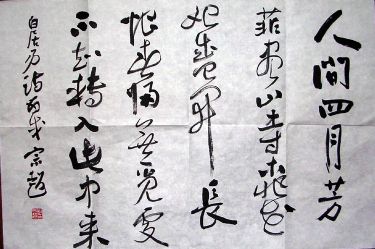 人間四月芳
菲盡山寺桃花
始盛開長
恨春歸無覓處
不知轉入此中來
白居易詩